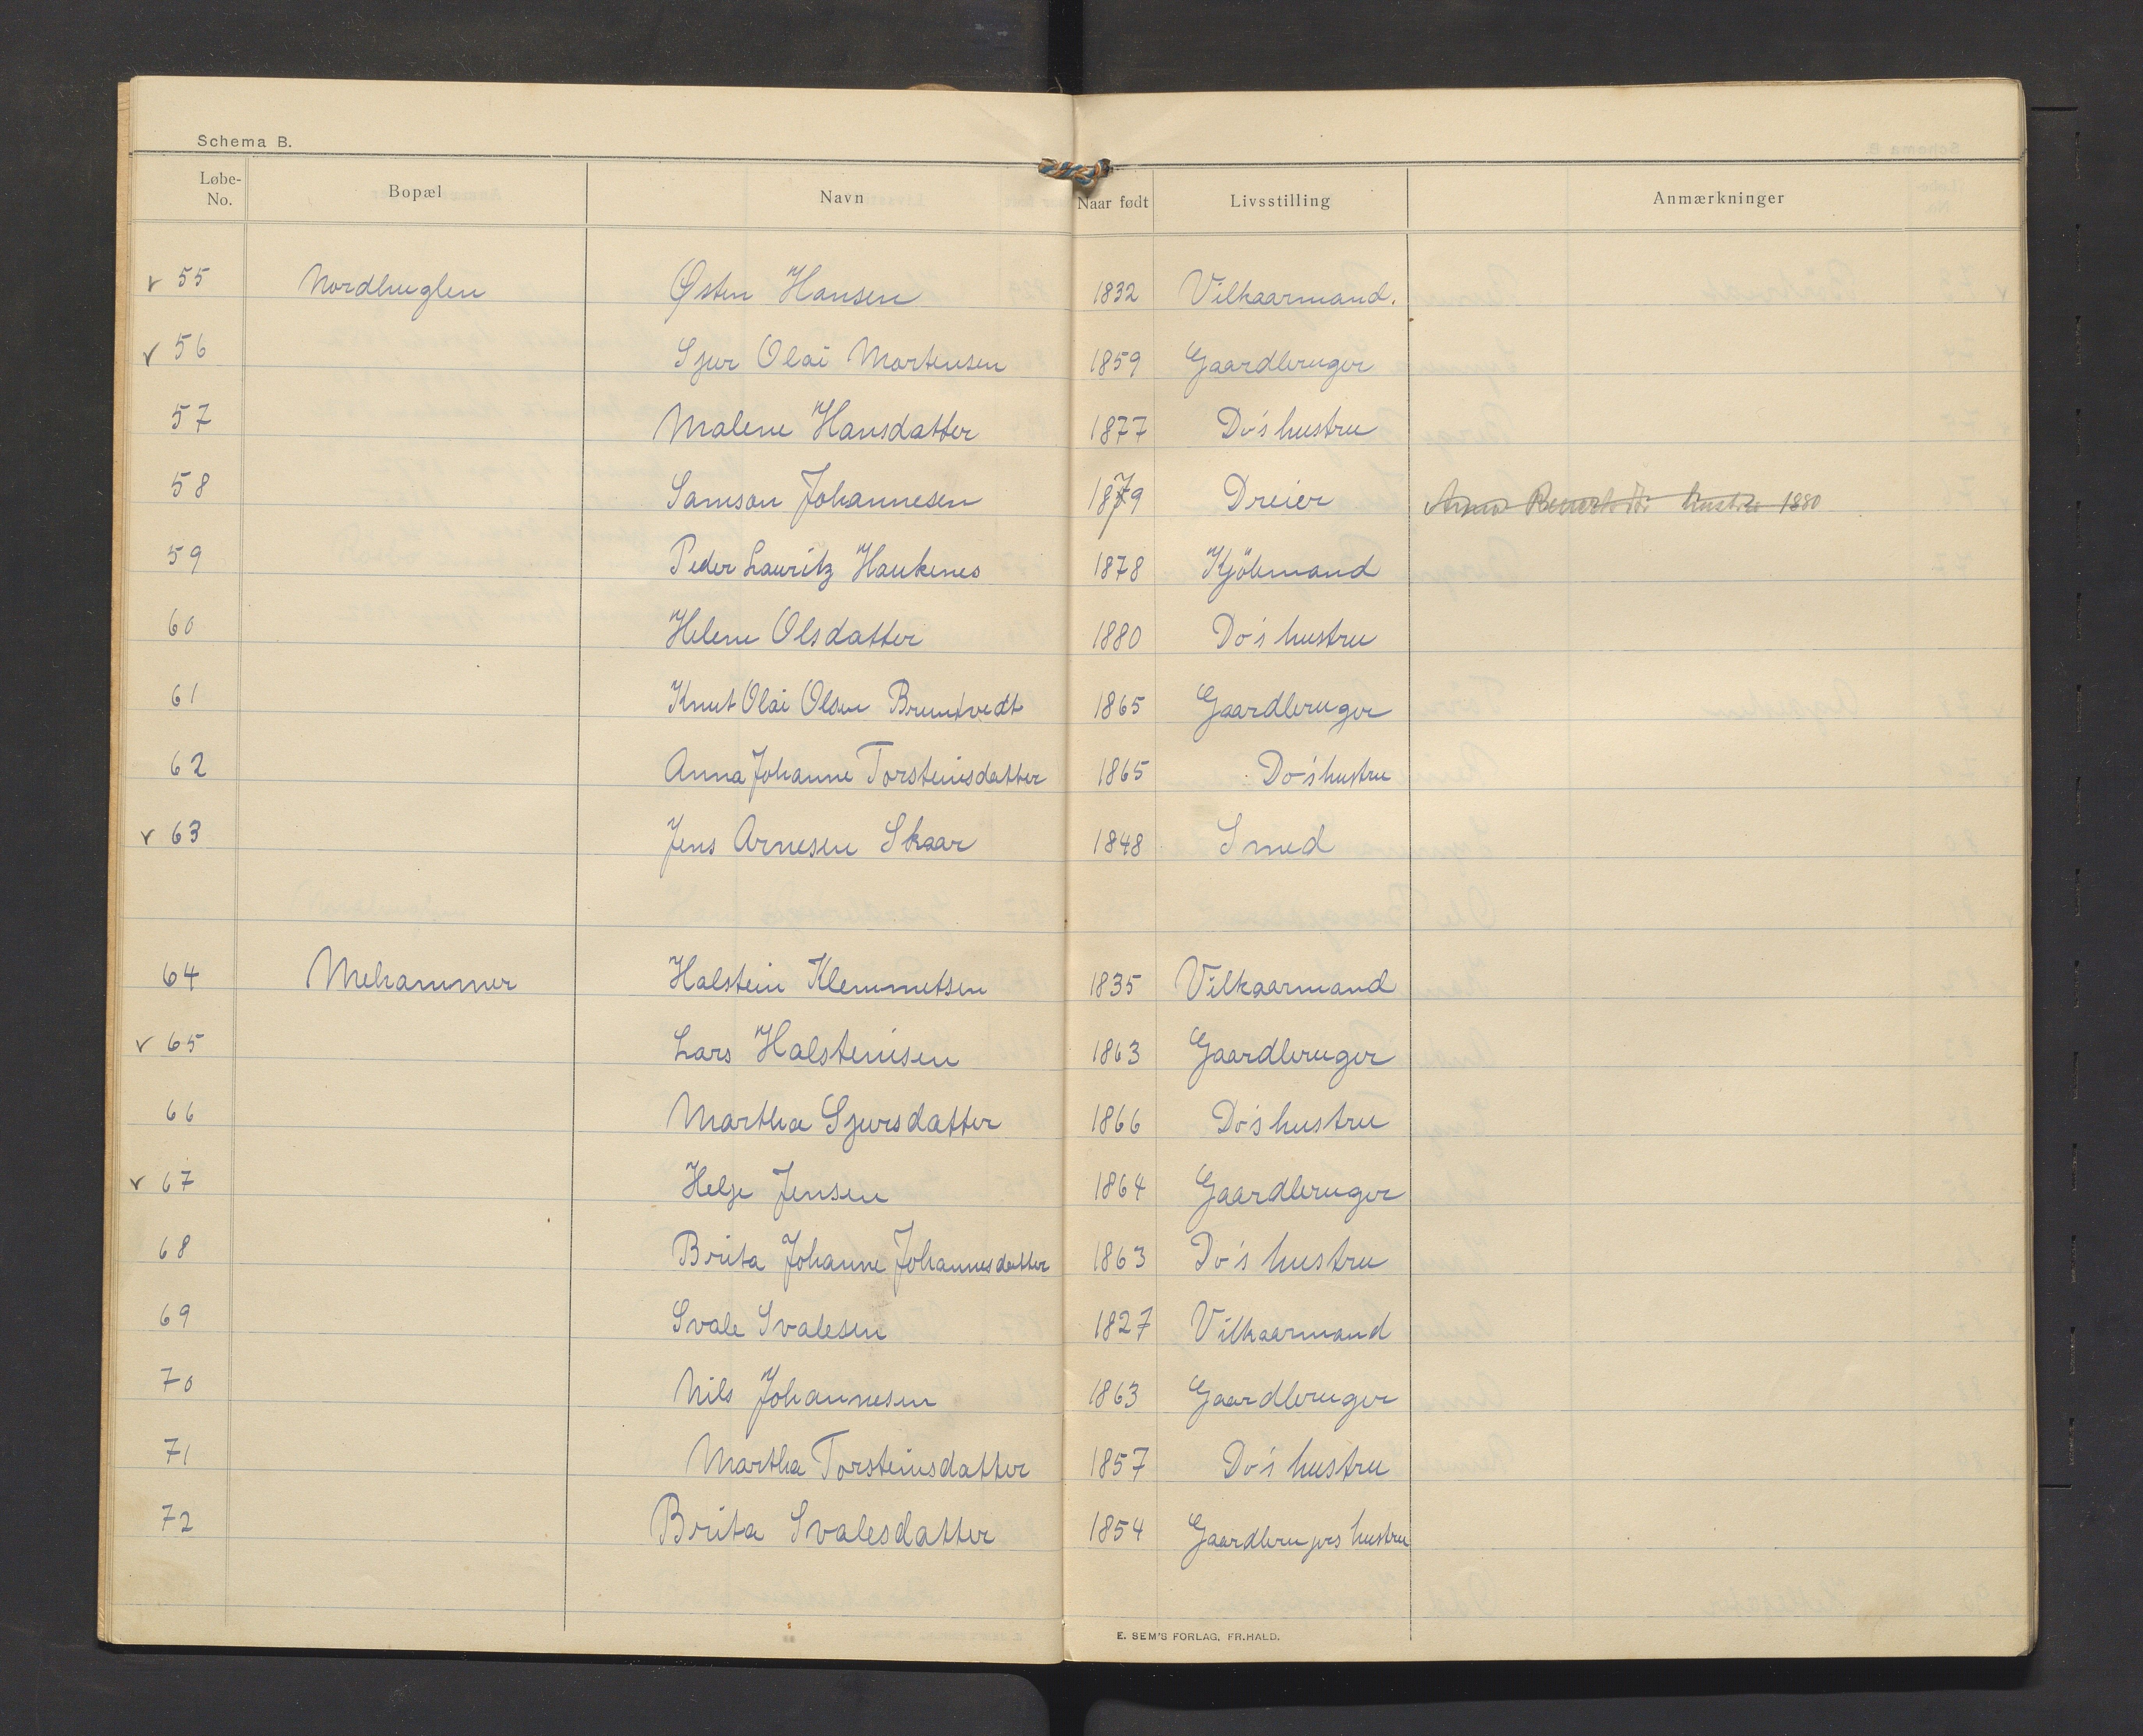 Schema B.
Løbe-No. Bopæl Navn Naar født Livsstilling Anmærkninger
v 55 Nordhuglen Østen Hansen 1832 Vilkaarmand.
v 56 Sjur Olai Mortensen 1859 Gaardbruger
57 Malene Hansdatter 1877 Do's hustru
58 Samson Johannesen 1879 Dreier hustru 1880
59 Peder Lauritz Haukenes 1878 Kjöbmand
60 Helene Olsdatter 1880 Do's hustru
61 Knut Olai Olsen Bruntvedt 1865 Gaardbruger
62 Anna Johanne Torsteinsdatter 1865 Do's hustru
v 63 Jens Arnesen Skaar 1848 Smed
64 Mehammer Halstein Klemmetsen 1835 Vilkaarmand
v 65 Lars Halsteinsen 1863 Gaardbruger
66 Martha Sjursdatter 1866 Do's hustru
v 67 Helje Jensen 1864 Gaardbruger
68 Brita Johanne Johannesdatter 1863 Do's hustru
69 Svale Svalesen 1827 Vilkaarmand
70 Nils Johannesen 1863 Gaardbruger
71 Martha Torsteinsdatter 1857 Do's hustru
72 Brita Svalesdatter 1854 Gaardbrugers hustru
E. SEM'S FORLAG, FR.HALD.